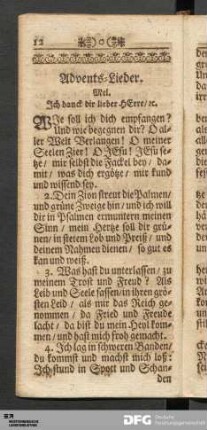 12
Advents-Lieder.
Mel.
Ich danck dir lieber HErre/ ꝛc.
WIe soll ich dich empfangen?
Und wie begegnen dir? O al-
ler Welt Verlangen! O meiner
Seelen Zier! O JEsu! JEsu se-
tze/ mir selbst die Fackel bey/ da-
mit/ was dich ergötze/ mir kund
und wissend sey.
2. Dein Zion streut die Palmen/
und grüne Zweige hin/ und ich will
dir in Psalmen ermuntern meinen
Sinn/ mein Hertze soll dir grü-
nen/ in stetem Lob und Preiß/ und
deinem Nahmen dienen/ so gut es
kan und weiß.
3. Was hast du unterlassen/ zu
meinem Trost und Freud? Als
Leib und Seele sassen/ in ihren grös-
sten Leid/ als mir das Reich ge-
nommen/ da Fried und Freude
lacht/ da bist du mein Heyl kom-
men/ und hast mich froh gemacht.
4. Ich lag in schweren Banden/
du kommst und machst mich loß:
Ich stund in Spott und Schan-
den
DFG Deutsche
Forschungsgemeinschaft